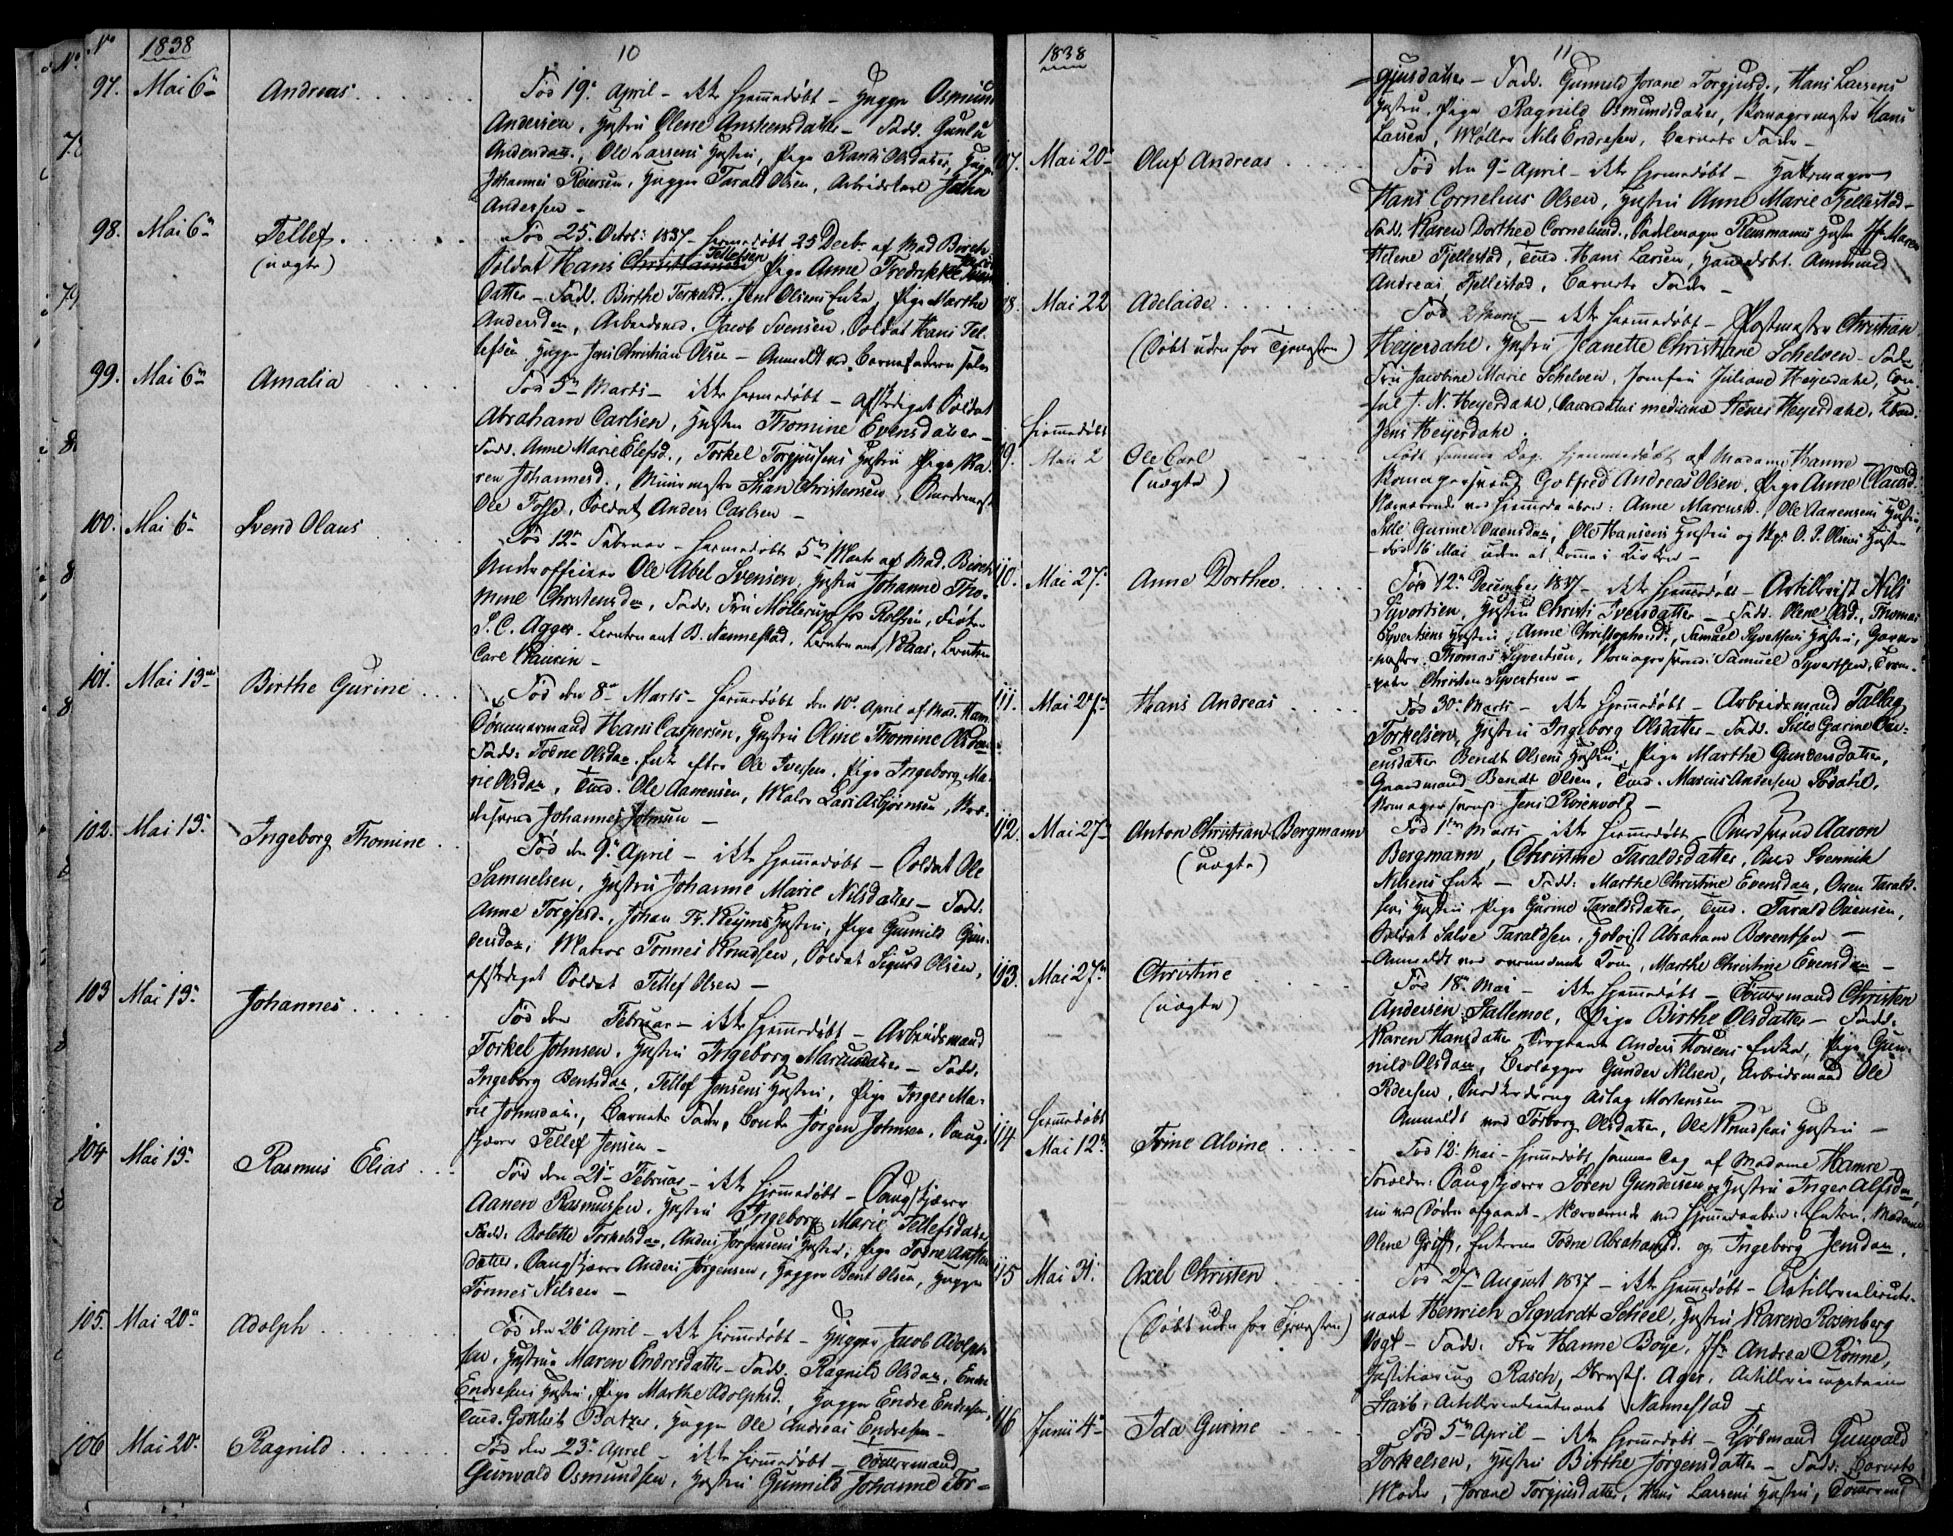 No 1838 10
97. Mai 6te Andreas
Fød 19de April – ikke hjemmedøbt – Hugger Osmund
Andersen, Hustru Olene Anstensdatter – Fadd. Gunlu
Andersdatt., Ole Larsens Hustru, Pige Ranti Olsdatter, Hugger
Johannes Reiersen, Hugger Tarald Olsen, Arbeidskarl Johan
Andersen –
98. Mai 6te Tellef
(uægte)
Fød 25. Octob: 1837 – hjemmedøbt 25 Decb. af Mad Birch
Soldat Hans Tellefsen Pige Anne Fredrikke
Datter – Fadd. Birthe Terkelsd., Jens Olsens Enke, Pige Marthe
Andersdtr, Arbeidsmd. Jacob Svensen, Soldat Hans Tel-
lefsen Hugger Jens Christian Olsen – Anmeldt ved Barnefaderen selv
99. Mai 6te Amalia
Fød 5te Marts – ikke hjemmedøbt – afskediget Soldat
Abraham Carlsen, Hustru Thomine Evensdatter –
Fadd. Anne Marie Elefsd., Torkel Torgjussens Hustru Pige Ka-
ren Johannesd., Muurmester Stian Christensen, Snedkermester
Ole Foss, Soldat Anders Carlsen –
100. Mai 6te Svend Olaus
Fød 12te Februar – hjemmedøbt 5te Marts af Mad. Birch
Underofficier Ole Abel Svensen, Hustru Johanne Tho-
mine Christensdtr, Fadd. Fru Møllerup, Rolfsen,
S. C. Agger. Lieutenant B. Nannestad, Lieutenant N Daas, Lieuten
Carl
101. Mai 13de Birthe Gurine
Fød den 8de Marts – hjemmedøbt den 10de April af Mad. Ham
Tømmermand Hans Caspersen, Hustru Oline Thomine Olsdatter
Fadd: Todne Olsdtr Enke efter Ole Iversen, Pige Ingeborg Ma-
rie Olsdtr, Tmd. Ole Aanensen, Matros Lars Asbjørnsen,
Johannes Johnsen –
102. Mai 13de Ingeborg Thomine
Fød den 9de April – ikke hjemmedøbt – Soldat Ole
Samuelsen, Hustru Johanne Marie Nilsdatter – Fadd.
Anne Torgjersd., Johan Fr. Keyms Hustru, Pige Gunnild Gun-
dersdtr, Matros Tønnes Knudsen, Soldat Sigurd Olsen,
afskediget Soldat Tellef Olsen –
103 Mai 13de Johannes
Fød den Februar – ikke hjemmedøbt – Arbeidsmand
Torkel Johnsen, Hustru Ingeborg Marcusdatter – Fadd.
Ingeborg Bentsdtr, Tellef Jensens Hustru, Pige Inger Ma-
rie Johnsdtr., Barnets Fader, Bonde Jørgen Johnsen, Saug-
skjærer Tellef Jensen –
104 Mai 13de Rasmus Elias
Fød den 21de Februar – ikke hjemmedøbt – Saugskjærer
Aanen Rasmussen, Hustru Ingeborg Marie Tellefsdatter
Fadd: Bolette Torkelsdtr, Anders Jørgensens Hustru, Pige Todne Ansten
datter, Saugskjærer Anders Jørgensen, Hugger Bent Olsen, Hugger
Tønnes Nilsen –
105. Mai 20de Adolph
Fød den 26de April – ikke hjemmedøbt – Hugger Jacob Adolph-
sen, Hustru Maren Endresdatter – Fadd. Ragnild Olsdtr, Endre
Endresens Hustru, Pige Marthe Adolphsd., Hugger Endre Endresen,
Tmd. Gotlieb Batzer, Hugger Ole Andreas Endresen –
106 Mai 20de Ragnild
Fød den 23de April – ikke hjemmedøbt – Tømmermand
Gunvald Osmundsen, Hustru Gunnild Johanne Tor-
1838 11
gjusdatter – Fadd. Gunnild Jorane Torgjusd., Hans Larsens
Hustru, Pige Ragnild Osmundsdatter, Skomagermester Hans
Larsen, Møller Nils Endresen, Barnets Fader –
107. Mai 20de Oluf Andreas
Fød den 9de April – ikke hjemmedøbt – Hattemager
Hans Cornelius Olsen, Hustru Anne Marie Fjellestad –
Fadd. Karen Dorthea Corneliusd., Sadelmager Rensmanns Hustru Jfr Maren
Helene Fjellestad, Tmd. Hans Larsen, Handelsbt. Ammund
Andreas Fjellestad, Barnets Fader –
108. Mai 22 Adelaide
(Døbt uden for Tjenesten)
Fød – ikke hjemmedøbt – Postmester Christian
Heyerdahl, Hustru Jeanette Christiane Schelven – Fadd
Fru Jacobine Marie Schelven, Jomfru Juliane Heyerdahl, Con-
sul J. N. Heyerdahl, Candidatus medicinæ Heyerdahl,
Jens Heyerdahl.
109. Hjemmedøbt
Mai 2 Ole Carl
(uægte)
Født samme Dag. hjemmedøbt af Madame Hamre –
Skomagersvend Gotfred Andreas Olsen, Pige Anne Clausd.
Nærværende ved hjemmedaaben: Anne Marcusd., Ole Aanensens Hustru,
Sille Gurine Ovensdtr, Ole Hansens Hustru og O. P. Olsens Hustru
– død 16 Mai uden at komme i Kirken –
110. Mai 27de Anne Dorthea
Fød 12te December 1837 – ikke hjemmedøbt – Artillerist Nils
Syvertsen, Hustru Christi Iversdatter – Fadd. Olene Olsd., Thomas
Syvertsens Hustru, Anne Christophersd., Samuel Syvertsens Hustru, Garver-
mester Thomas Syvertsen, Skomagersvend Samuel Syvertsen, Trom-
peter Christen Syvertsen –
111. Mai 27de Hans Andreas
Fød 30te Marts – ikke hjemmedøbt – Arbeidsmand Tallag
Torkelsen, Hustru Ingeborg Olsdatter – Fadd. Sille Gurine Ov-
ensdatter Bendt Olsens Hustru, Pige Marthe Gundersdatter,
Gaardmand Bendt Olsen, Tmd. Marcus Andersen Sødahl,
Skomagersvend Jens Rosenvold –
112. Mai 27de Anton Christian Bergmann
(uægte)
Fød 1ste Marts – ikke hjemmedøbt – Smedsvend Aaron
Bergmann, Christine Taraldsdatter, Smed Svennik
Nilsens Enke – Fadd: Marthe Christine Evensdtr, Oven Tarald-
sens Hustru Pige Gurine Taraldsdatter, Tmd. Tarald Ovensen,
Soldat Salve Taraldsen, Hoboist Abraham Berentsen –
– Anmeldt ved overnævnte Kone, Marthe Christine Evensdtr –
113. Mai 27de Christine
(uægte)
Fød 18de Mai – ikke hjemmedøbt – Tømmermand Christen
Andersen Stallemoe, Pige Birthe Olsdatter – Fadd:
Karen Hansdatter Sergeant Anders Moens Enke, Pige Gun-
nild Olsdtr, Brolægger Gunder Nilsen, Arbeidsmand Ole
Pedersen, Snedkerdreng Aslag Mortensen
Anmeldt ved Torborg Olsdatter, Ole Knudsens Hustru –
114 Hjemmedøbt
Mai 12te Trine Alvine
Fød 12te Mai – hjemmedøbt samme Dag af Madame Hamre
Forældre: Saugskjærer Søren Gundersen og Hustru Inger Alfsdtr,
nu ved Døden afgaaet – Nærværende ved hjemmedaaben: Enken, Madame
Olene Groff, Enkerne Todne Abrahamsd. og Ingeborg Jensdtr.
115 Mai 31. Axel Christen
(Døbt uden for Tjenesten)
Fød 27de August 1837 – ikke hjemmedøbt – Artillerielieute-
nant Henrich Sigvardt Scheel, Hustru Karen Rosenberg
Vogt – Fadd: Fru Hanne Boye, Jfr Andrea Rønne,
Justitiarius Rasch, Obrstl. Ager, Artilleriecapitaine
Starb, Artillerielieutenant Nannestad –
116 Junii 4de Ida Gurine
Fød 5te April – ikke hjemmedøbt – Kjøbmand Gunvald
Torkelsen, Hustru Birthe Jørgensdatter – Fadd: Barnets
Moder, Jorane Torgjusdatter, Hans Larsens Hustru, Tømmermd